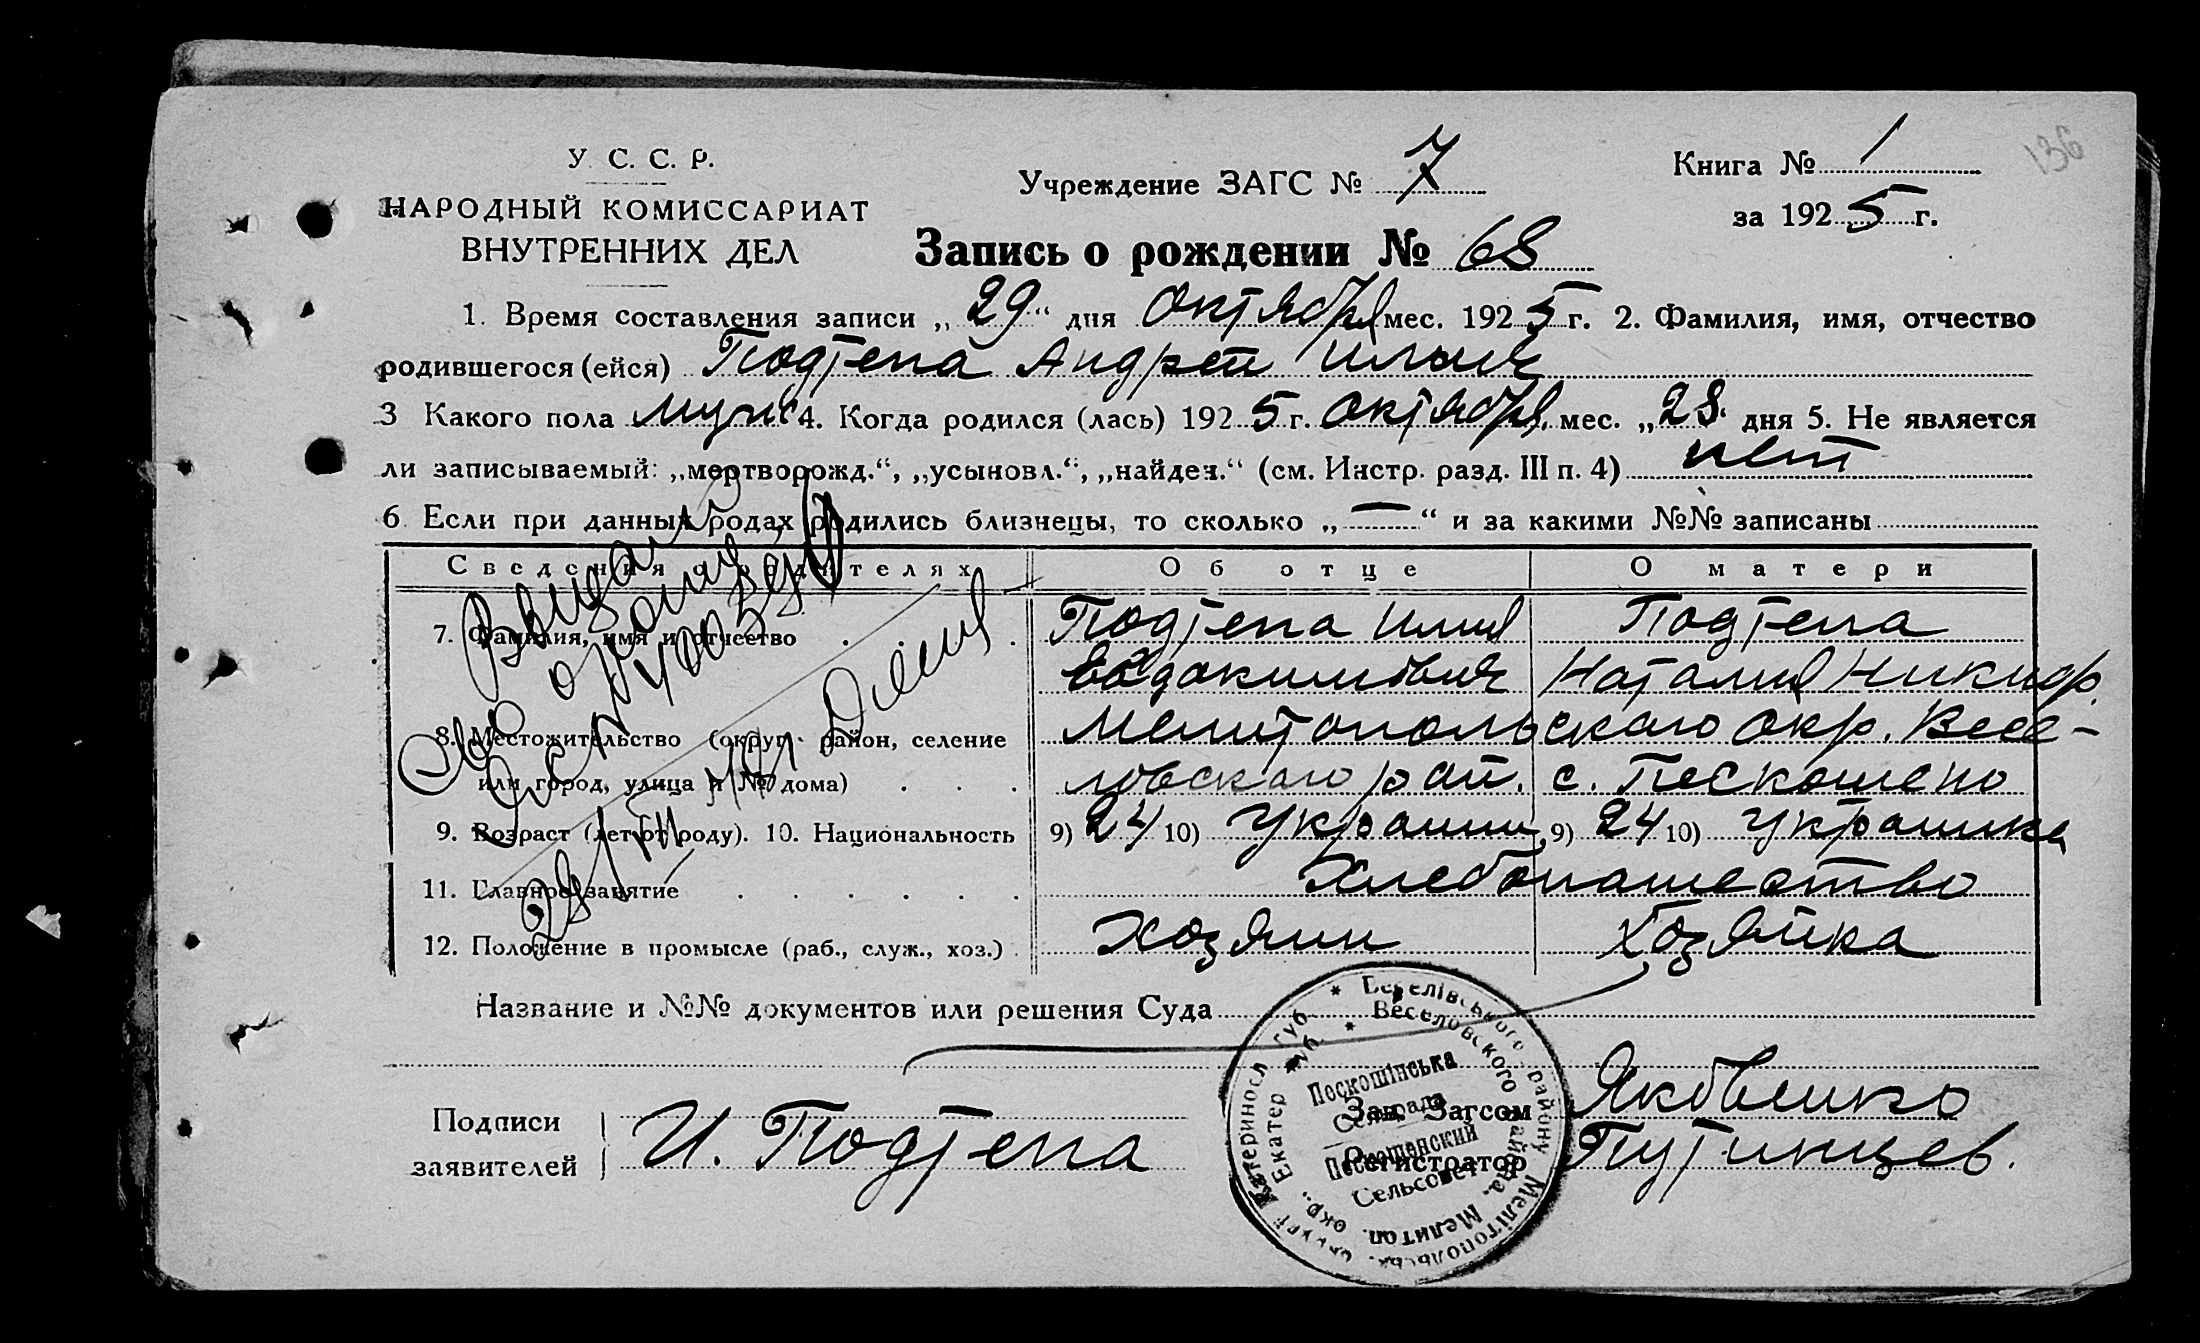 136
У. С. С. Р.
НАРОДНЫЙ КОМИССАРИАТ
ВНУТРЕННИХ ДЕЛ
Учреждение ЗАГС № 7
Книга № 1
за 1925 г.
Запись о рождении № 68
1. Время составления записи „29“ дня октября мес. 1925 г. 2. Фамилия, имя, отчество
родившегося (ейся) Подтепа Андрей Ильич
3 Какого пола муж 4. Когда родился (лась) 1925 г. октября мес. „28. дня 5. Не является
ли записываемый: „мертворожд.“, „усыновл.“, „найден.“ (см. Инстр. разд. III п. 4) нет
6. Если при данных родах родились близнецы, то сколько „—“ и за какими №№ записаны
Сведения о родителях Об отце О матери
7. Фамилия, имя и отчество Подтепа Илия Подтепа
Евдокимович Наталия Никифр.
8. Местожительство (округ, район, селение Мелитопольского окр. Весе-
или город, улица и № дома) ловского рай. с. Пескошено
9. Возраст (лет от роду). 10. Национальность 9) 24 10) Украин 9) 24 10) Украинка
11. Главное занятие Хлебопашество
12. Положение в промысле (раб., служ., хоз.) Хозяин Хозяйка
Название и №№ документов или решения Суда
Подписи
заявителей И. Подтепа
Зав. Загсом Яковенко
Регистратор Путинцев.
Веселівського району Мелітопольськ. округи Катериносл губ
Веселовского района. Мелитоп. окр., Екатер губ.
Пескошінська
Сельрада
Пескошенский
Сельсовет